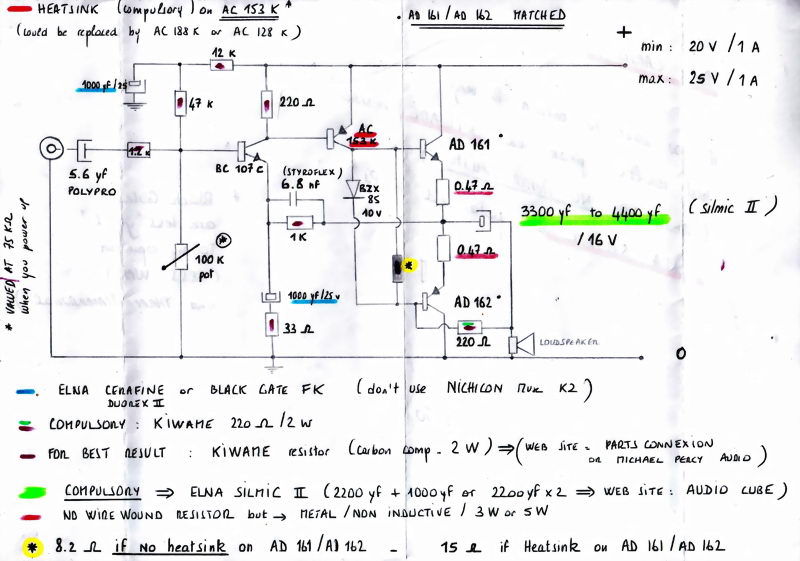 HEATSINK (compulsory) on AC 153 K *
(could be replaced by AC 188 K or AC 128 K)
. AD 161 / AD 162 MATCHED
+
min : 20 V / 1 A
max : 25 V / 1 A
12 K
1000 yf/25
47 K
220 Ω
AC
153 K
AD 161 *
1.2 K
BC 107 C
5.6 yf
POLYPRO
(STYROFLEX)
6.8 nF
BZX
85
10 V
0.47 Ω
1K
3300 yf to 4400 yf
(Silmic II)
/ 16 V
0.47 Ω
*
100 K
pot
*
* VALUED AT 75 KΩ
when you power up
1000 yf/25 v
AD 162 *
33 Ω
220 Ω
LOUDSPEAKER
0
ELNA CERAFINE or BLACK GATE FK (don't use NICHICON MUSE KZ)
DUOREX II
COMPULSORY : KIWAME 220 Ω / 2 W
FOR BEST RESULT : KIWAME resistor (Carbon comp - 2 W) ⇒ (WEB SITE = PARTS CONNEXION
OR MICHAEL PERCY AUDIO)
COMPULSORY ⇒ ELNA SILMIC II (2200 yf + 1000 yf or 2200 yf x 2 ⇒ WEB SITE : AUDIO CUBE)
NO WIRE WOUND RESISTOR but → METAL / NON INDUCTIVE / 3 W or 5 W
* 8.2 Ω if NO heatsink on AD 161 / AD 162 - 15 Ω if Heatsink on AD 161 / AD 162